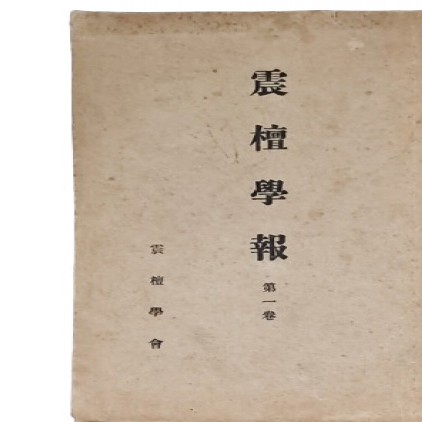 震檀學報
第一卷
震檀學會